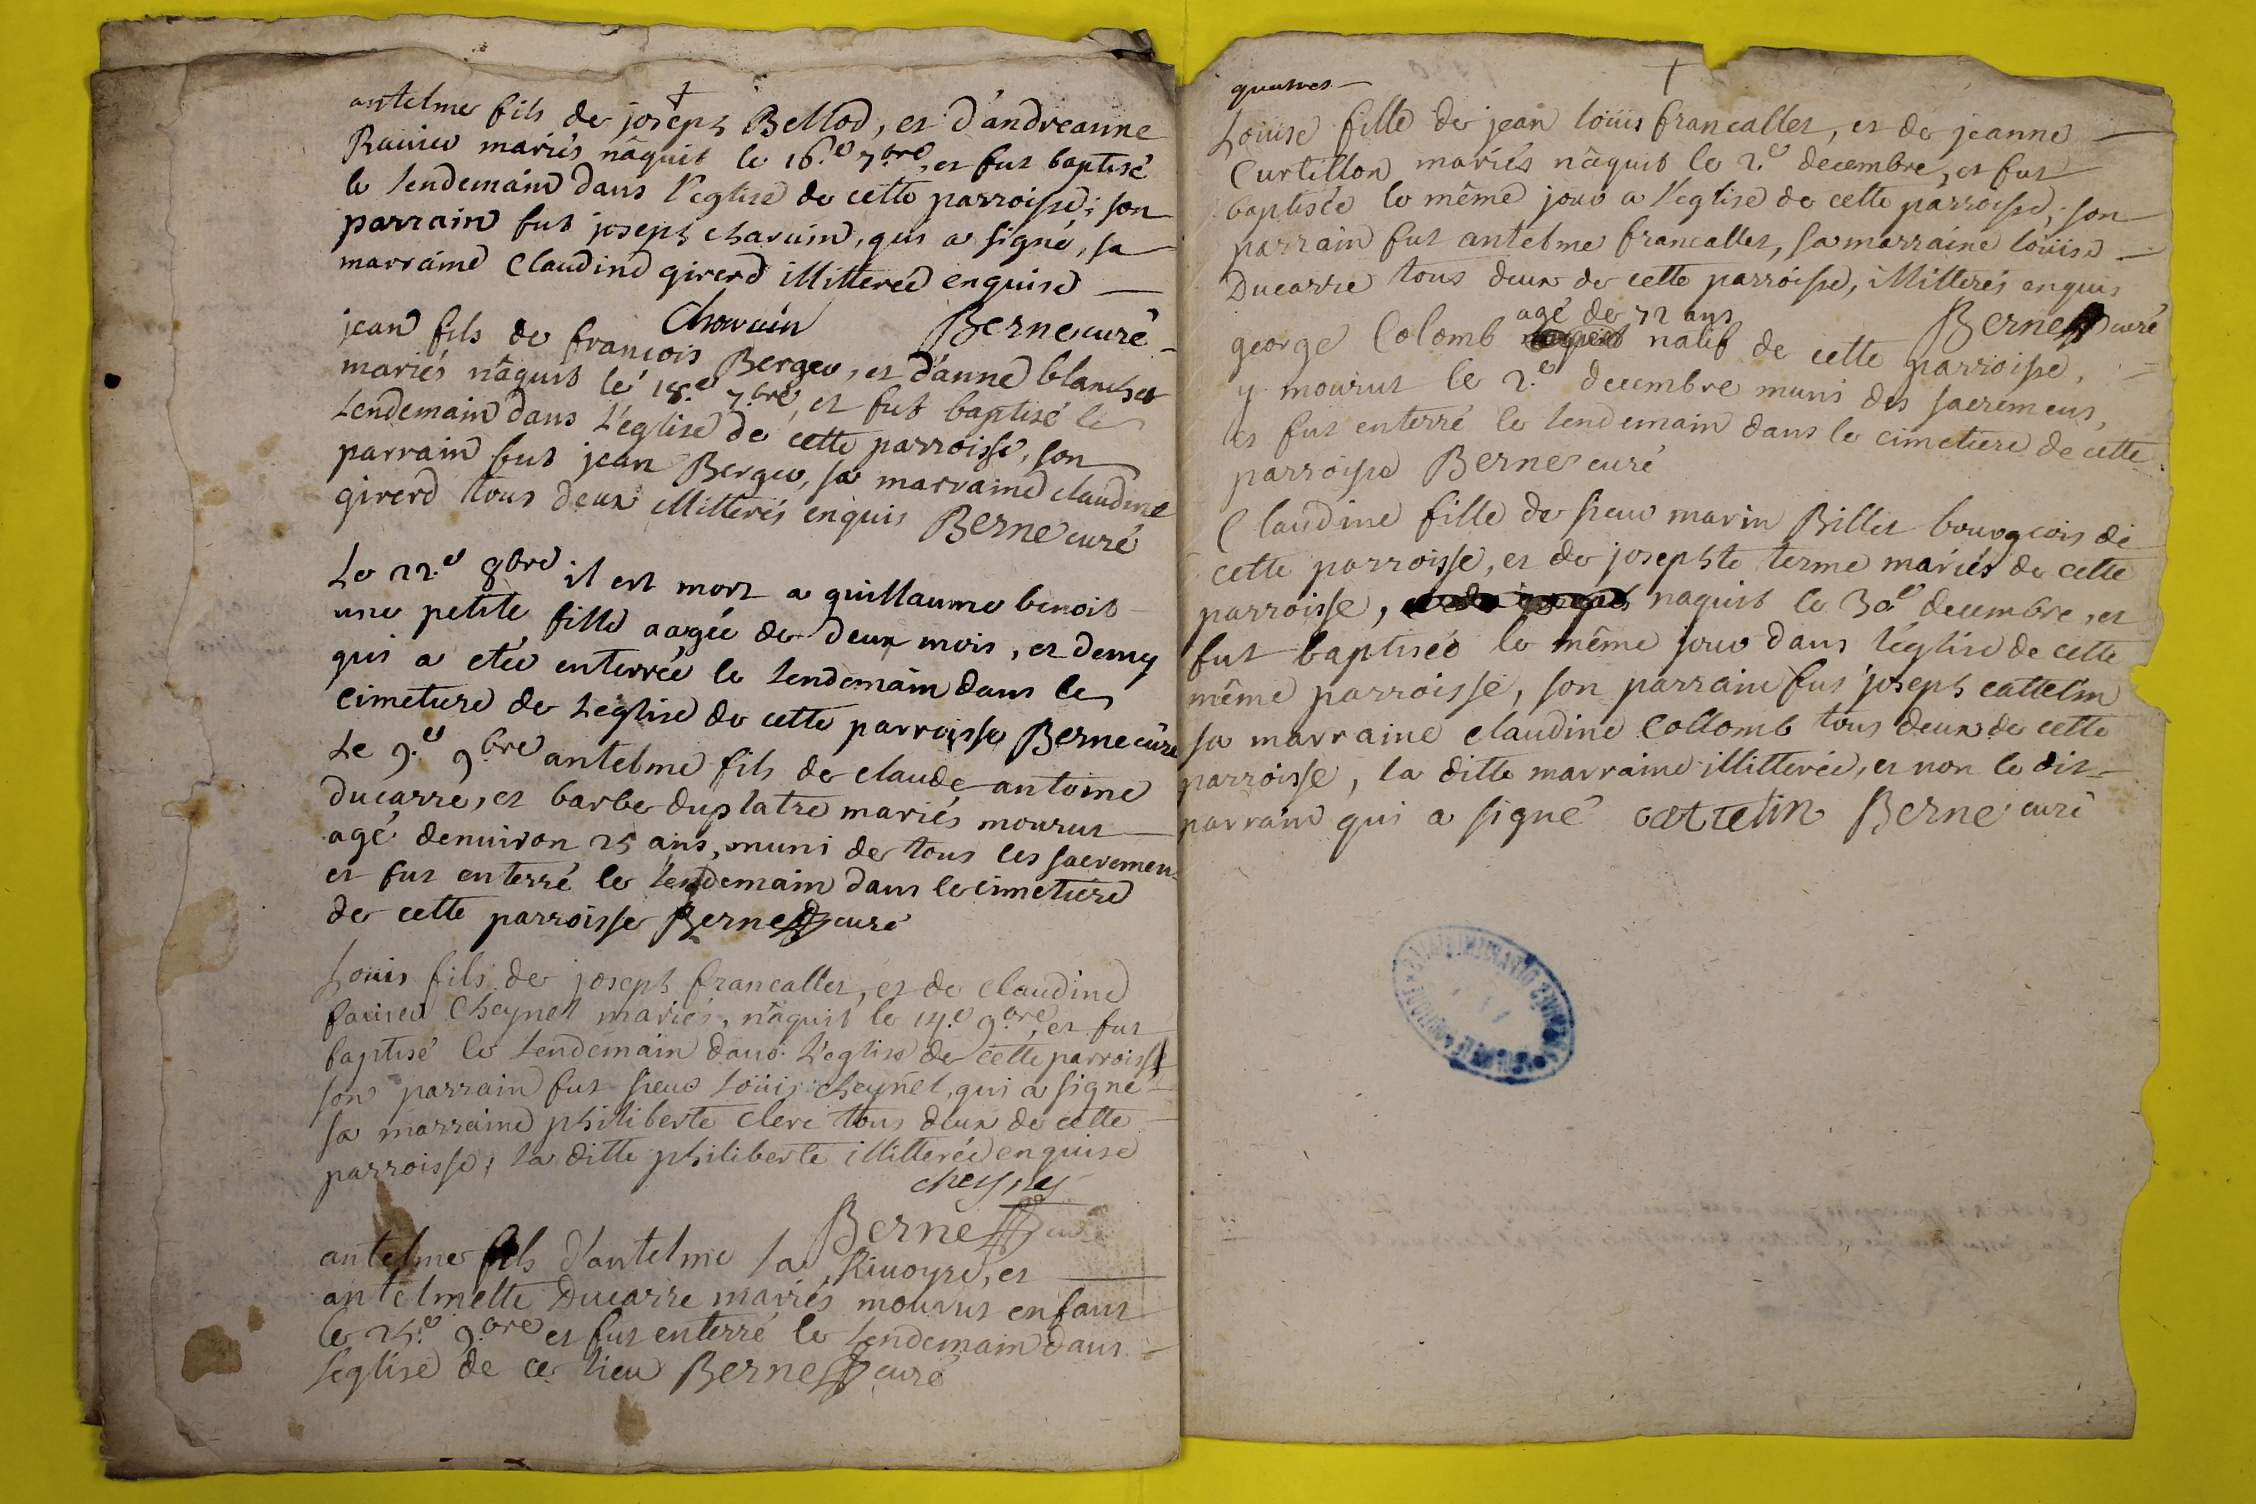 antelme fils de joseph Bellod, et d'andreanne
Rauier mariés nâquit le 16.e 7.bre, et fut baptisé
le lendemain dans l'eglise de cette parroisse; son
parrain fut joseph charuin, qui a signé, sa
marraine Claudine girerd illitterée enquise
Charuin Berne curé
jean fils de françois Berger, et d'anne blanchet
mariés nâquit le 18.e 7.bre, et fut baptisé le
lendemain dans l'eglise de cette parroisse, son
parrain fut jean Berger, sa marraine claudine
girerd tous deux illitterés enquis Berne curé
Le 22.e 8bre il est mort a guillaume benoit
une petite fille aagée de deux mois, et demy
qui a etée enterrée le lendemain dans le
cimetiere de l'eglise de cette parroisse Berne curé
Le 9.e 9bre antelme fils de claude antoine
ducarre, et barbe duplatre mariés mourut
agé denuiron 25 ans, muni de tous les sacremens
et fut enterré le lendemain dans le cimetiere
de cette parroisse Berne curé
Louis fils de joseph francallet, et de claudine
Cheynel mariés, nâquit le 14.e 9.bre, et fut
baptisé le lendemain dans l'eglise de cette parroisse
son parrain fut sieur Loüis cheynel, qui a signé
sa marraine philiberte clerc tous deux de cette
parroisse, la ditte philiberte illitterée enquise
cheynel
Berne curé
antelme fils d'antelme la Riuoyre, et
antelmette Ducarre mariés mourut enfant
le 25.e 9.bre et fut enterré le lendemain dans
l'eglise de ce lieu Berne curé
Loüise fille de jean loüis francallet, et de jeanne
Curtillon mariés nâquit le 2.e decembre, et fut
baptisée le même jour a l'eglise de cette parroisse, son
parrain fut antelme francallet, sa marraine loüise
Ducarre tous deux de cette parroisse, illitterés enquis
Berne curé
agé de 72 ans
george Colomb natif de cette parroisse,
y mourut le 2.e decembre muni des sacremens,
et fut enterré le lendemain dans le cimetiere de cette
parroisse Berne curé
Claudine fille de sieur marin Billiet bourgeois de
cette parroisse, et de josephte terme mariés de cette
parroisse, naquit le 30.e decembre, et
fut baptisée le même jour dans l'église de cette
même parroisse, son parrain fut joseph cattelin
sa marraine claudine Collomb tous deux de cette
parroisse, la ditte marraine illitterée, et non le dit
parrain qui a signé cattelin Berne curé